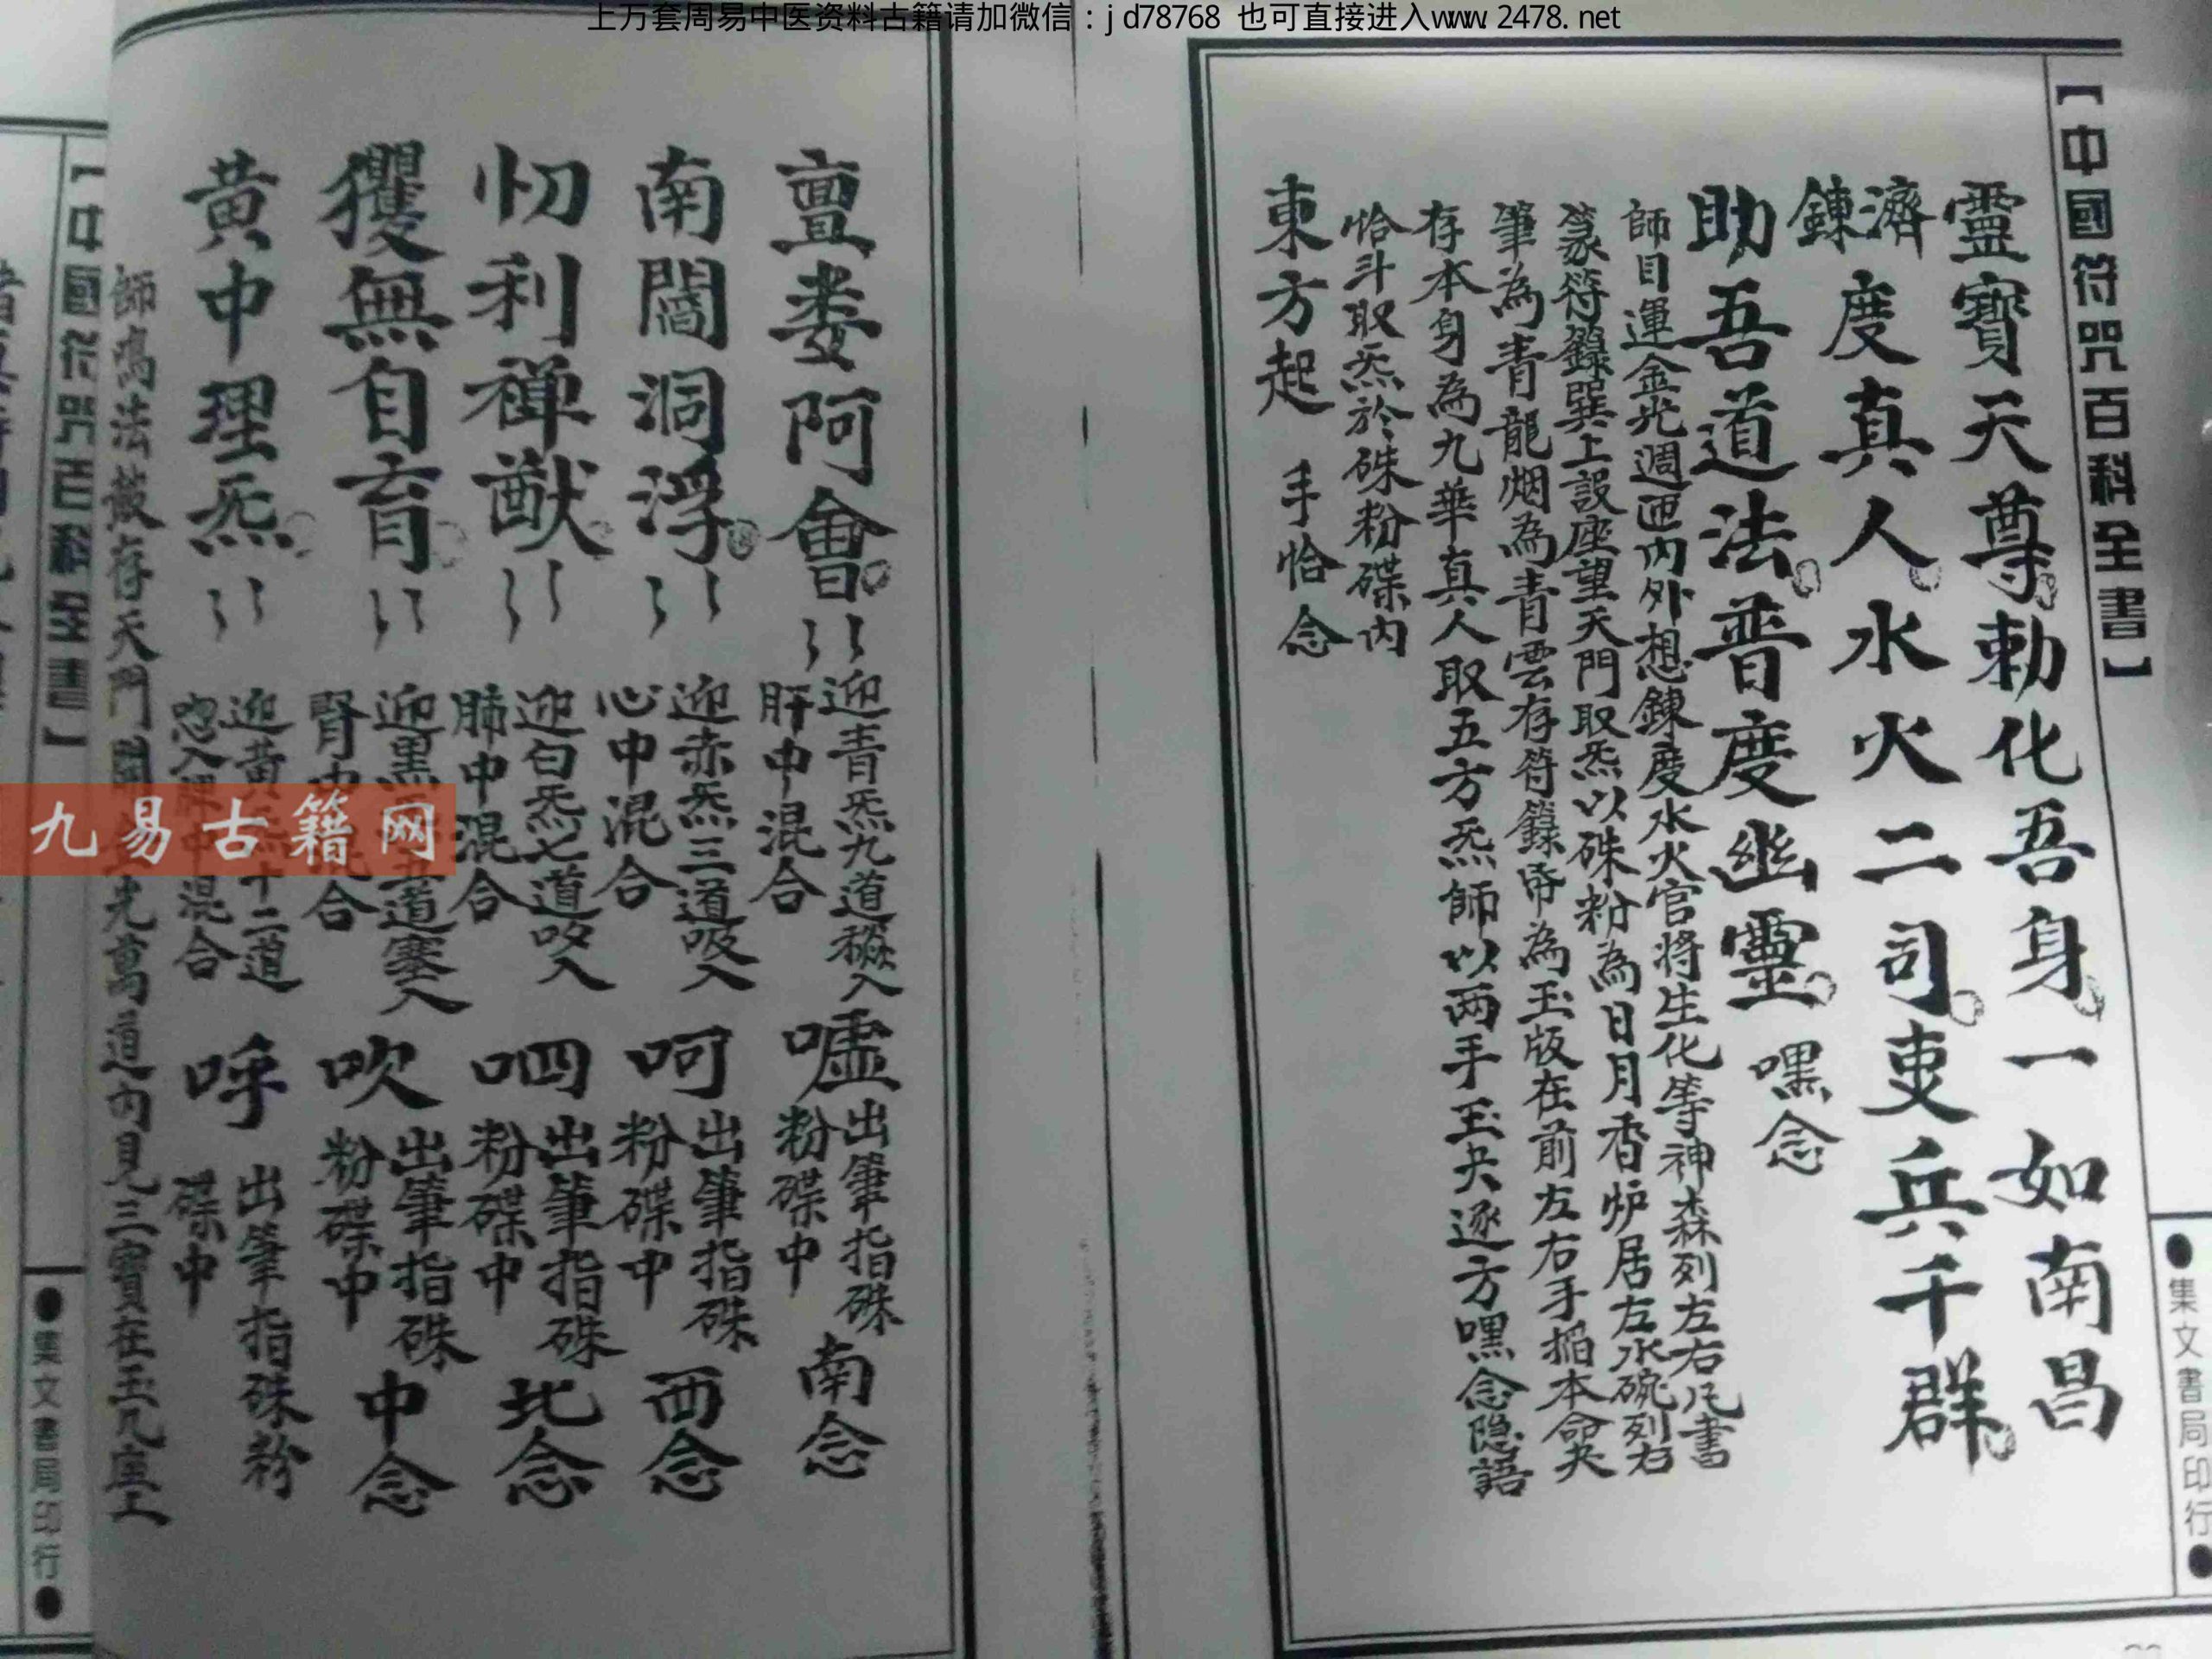 上万套周易中医资料古籍请加微信：jd78768 也可直接进入www.2478.net
【中國符咒百科全書】
●集文書局印行●
靈寶天尊勅化吾身一如南昌
濟鍊度真人水火二司吏兵千群
助吾道法普度幽靈 嘿念
師目運金光週匝內外想鍊度水火官將生化等神森列左右凡書
篆符籙巽上設座望天門取炁以硃粉為日月香炉居左水碗列右
筆為青龍烟為青雲存符籙帋為玉版在前左右手搯本命夬
存本身為九華真人取五方炁師以两手玉夬逐方嘿念隐語
恰斗取炁於硃粉碟内
東方起 手恰念
亶婁阿會 迎青炁九道 入肝中混合 噓 出筆指硃粉碟中 南念
南閻洞浮 迎赤炁三道吸入心中混合 呵 出筆指硃粉碟中 西念
忉利禪猷 迎白炁七道 入肺中混合 呬 出筆指硃粉碟中 北念
玃無自育 迎黑 五道塞入腎中混合 吹 出筆指硃粉碟中 中念
黃中理炁 迎黃 十二道 入脾中混合 呼 出筆指硃粉碟中
師鳴法鼓存天門開 光萬道內見三寶在玉几座上
九易古籍网
【中國符咒百科全書】
●集文書局印行●